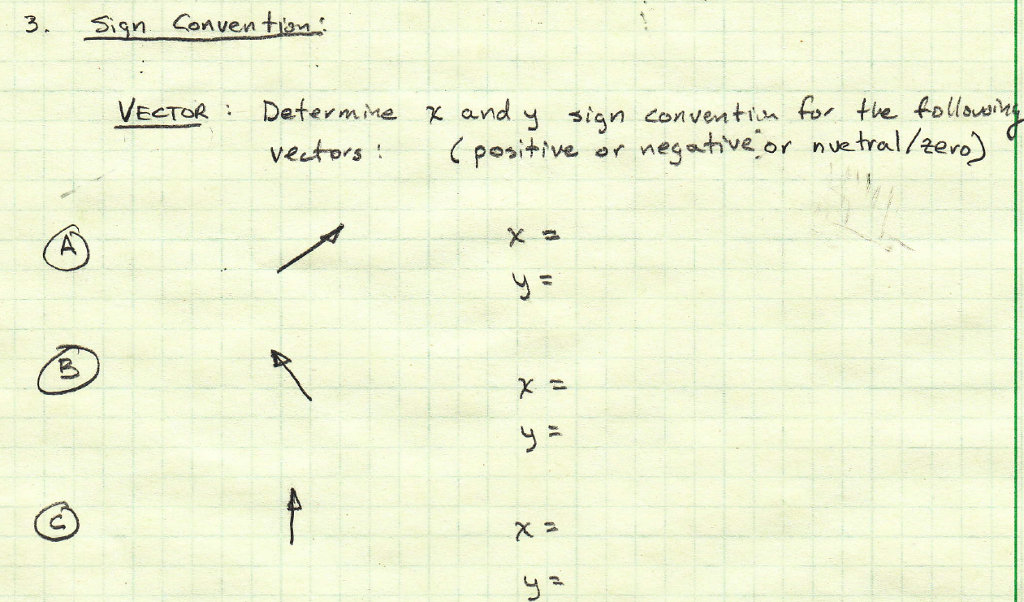 3. Sign Convention:
VECTOR: Determine x and y sign convention for the following
vectors: (positive or negative or nuetral/zero)
A
x =
y =
B
x =
y =
C
x =
y =